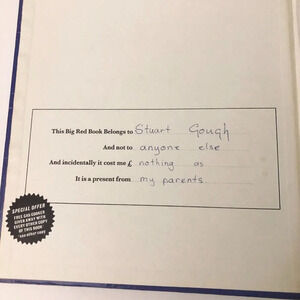 This Big Red Book Belongs to Stuart Gough
And not to anyone else
And incidentally it cost me £ nothing as
It is a present from my parents.
SPECIAL OFFER
FREE GAS-COOKER
GIVEN AWAY WITH
EVERY OTHER COPY
OF THIS BOOK